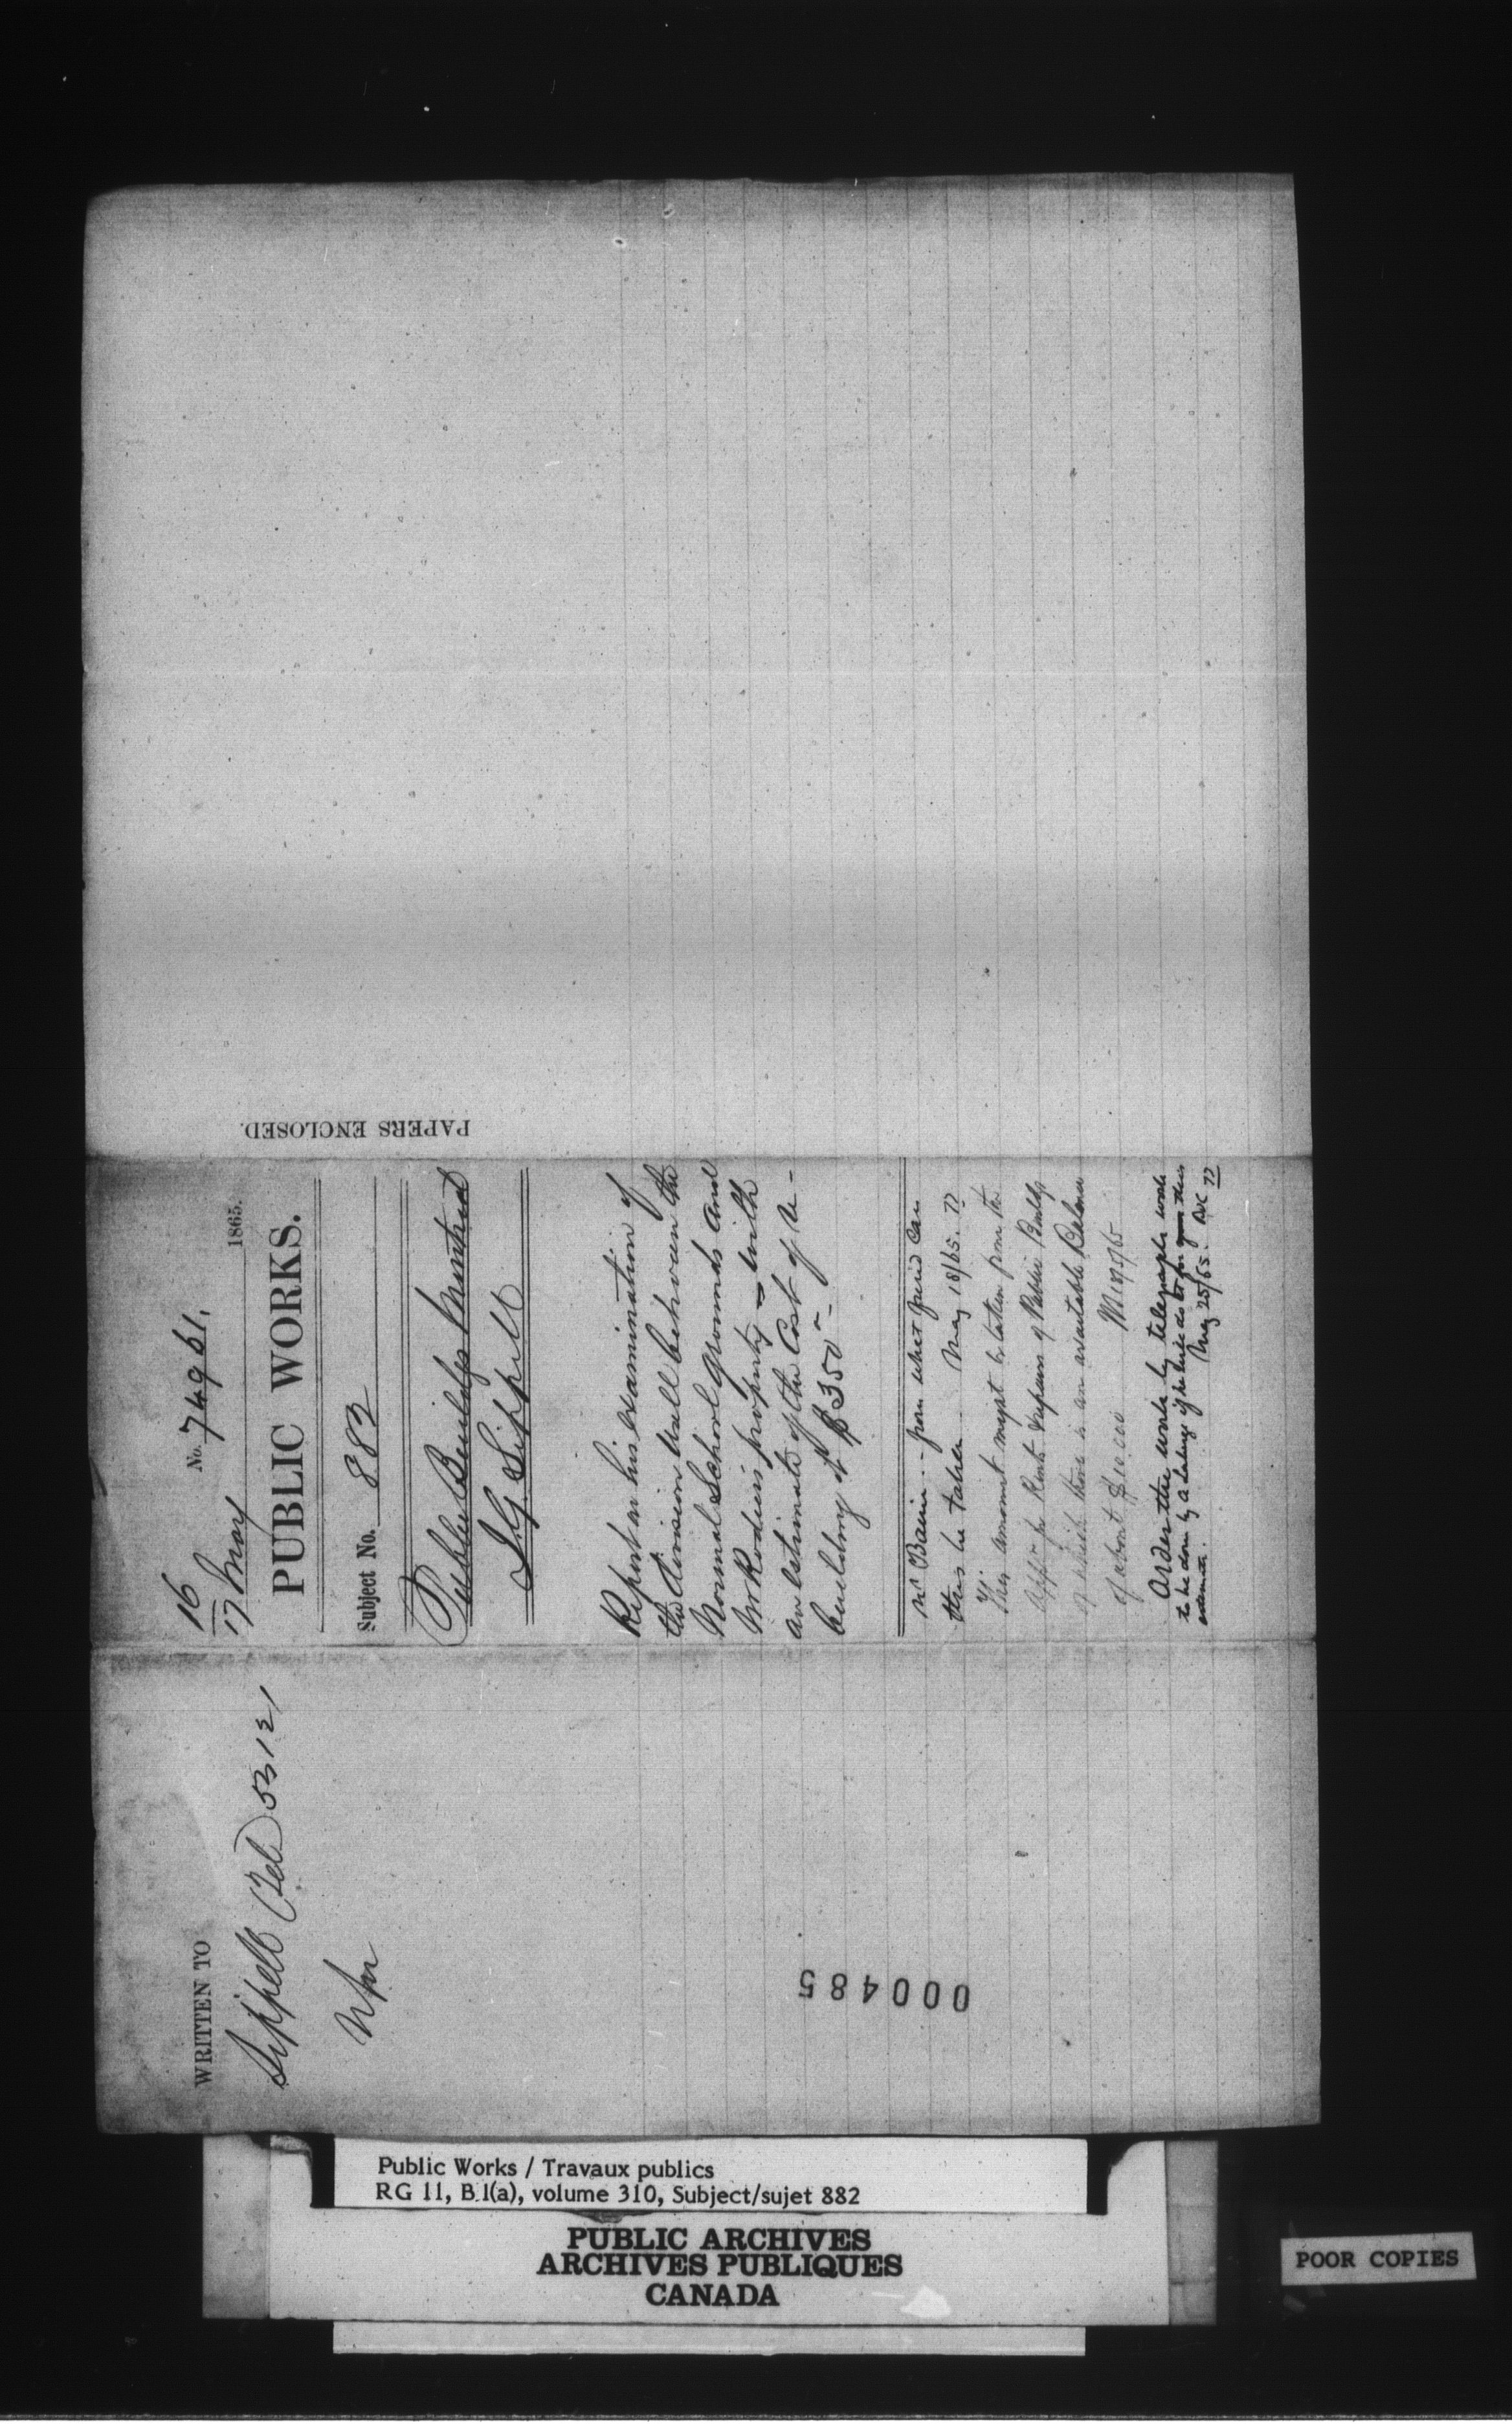 16
17 May
No. 74961.
1865.
PUBLIC WORKS.
Subject No. 882
Public Buildgs Montreal
J. G. Sippell
Report on his examination of
the division wall between the
Normal School grounds and
Mr Rodiers property - with
an estimate of the Cost of re-
building it $350-
Mr Bain - from what fund can
this be taken May 18/65. TT
This amount might be taken from the
App. for Rents & repairs of Public Buildgs
of which there is an available Balance
of about $10,000
Order the work by telegraph work
to be done by a da labor if he can do it for this
estimate. May 25/65.
PAPERS ENCLOSED.
WRITTEN TO
Sippell (Tel) 53121
000485
Public Works / Travaux publics
RG 11, B.1(a), volume 310, Subject/sujet 882
PUBLIC ARCHIVES
ARCHIVES PUBLIQUES
CANADA
POOR COPIES